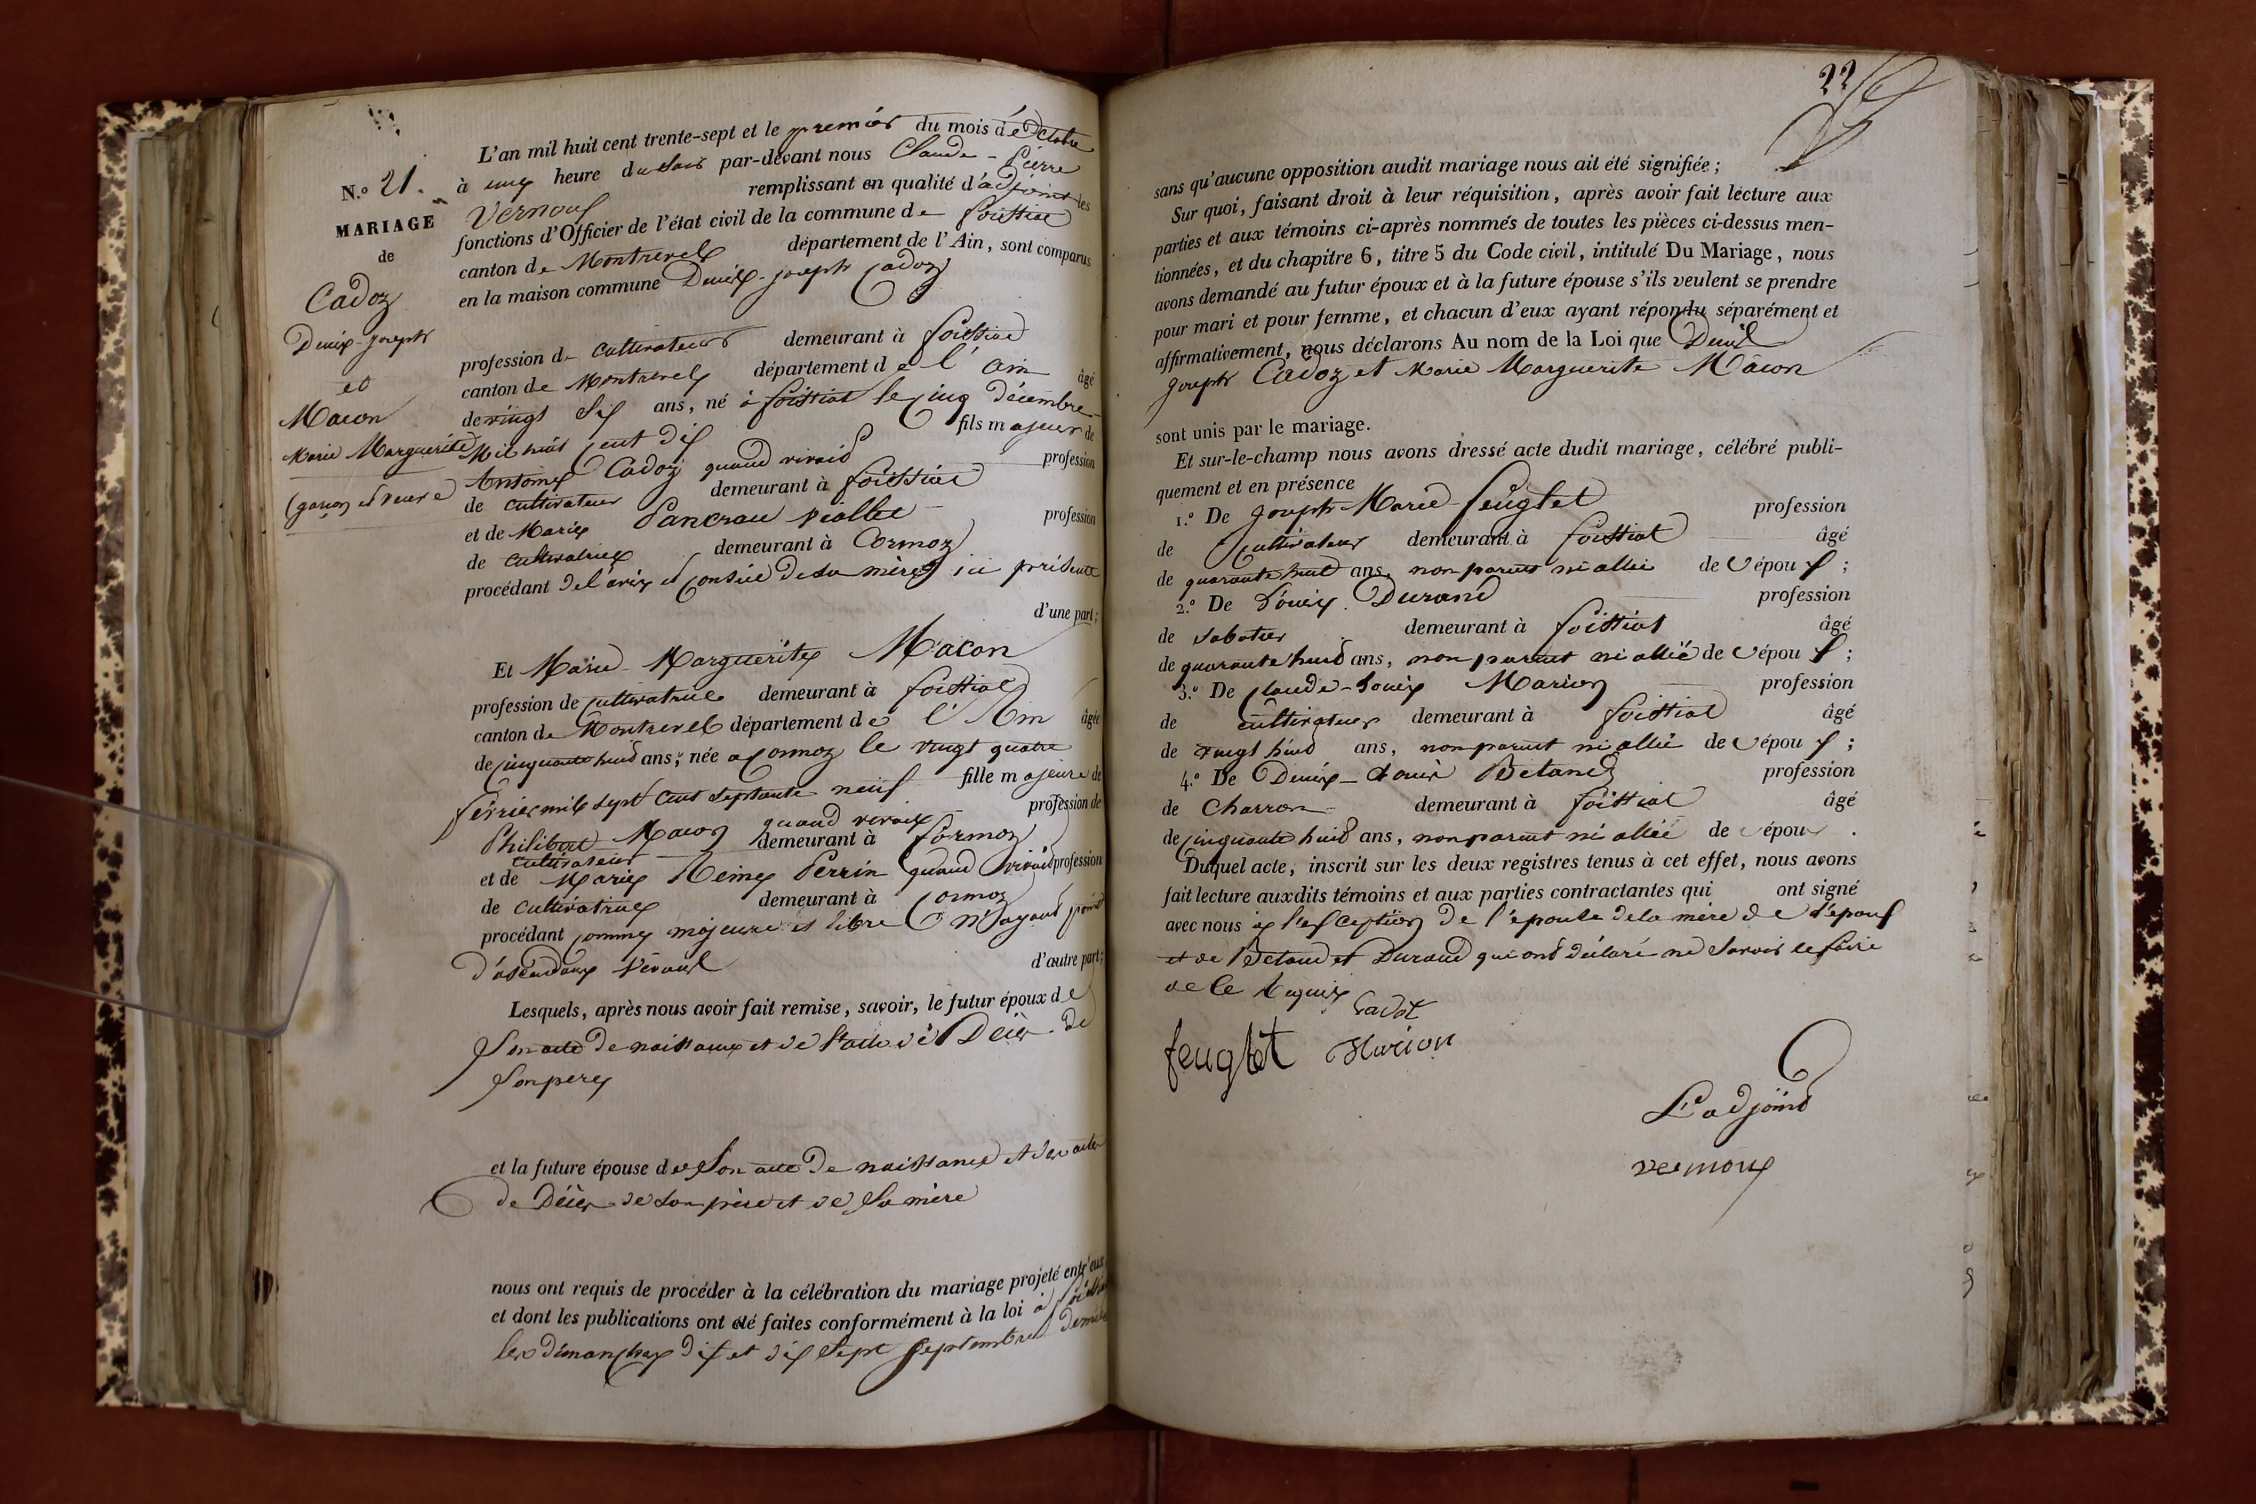 N.º 21.
MARIAGE
de
Cadoz
Denis-joseph
et
Macon
Marie Marguerite
(garçon et veuve)
L'an mil huit cent trente-sept et le premier du mois d'Octobre
à une heure du soir par-devant nous Claude-Pierre
Vernoux remplissant en qualité d'adjoint les
fonctions d'Officier de l'état civil de la commune de foissiat
canton de Montrevel département de l'Ain, sont comparus
en la maison commune Denis-joseph Cadoz
profession de cultivateur demeurant à foissiat
canton de Montrevel département de l'ain âgé
de vingt six ans, né à foissiat le cinq décembre
mil huit cent dix fils majeur de
Antoine Cadoz quand vivait profession
de cultivateur demeurant à foissiat
et de Marie Pancrace viallet profession
de cultivatrice demeurant à Cormoz
procédant de l'avis et conseil de sa mère ici présente
d'une part;
Et Marie-Marguerite Macon
profession de cultivatrice demeurant à foissiat
canton de Montrevel département de l'Ain âgée
de cinquante huit ans, née à cormoz le vingt quatre
février mil sept cent septante neuf fille majeure de
Philibert Macon quand vivait profession de
cultivateur demeurant à Cormoz
et de Marie Reine Perrin quand vivait profession
de cultivatrice demeurant à Cormoz
procédant comme majeure et libre N'ayant point
d'ascendans vivant d'autre part;
Lesquels, après nous avoir fait remise, savoir, le futur époux de
son acte de naissance et de l'acte de Décès de
son père
et la future épouse de son acte de naissance et des actes
de Décès de son père et de sa mère
nous ont requis de procéder à la célébration du mariage projeté entr'eux
et dont les publications ont été faites conformément à la loi à foissiat
les dimanches dix et dix sept septembre dernier
22
sans qu'aucune opposition audit mariage nous ait été signifiée;
Sur quoi, faisant droit à leur réquisition, après avoir fait lecture aux
parties et aux témoins ci-après nommés de toutes les pièces ci-dessus men-
tionnées, et du chapitre 6, titre 5 du Code civil, intitulé Du Mariage, nous
avons demandé au futur époux et à la future épouse s'ils veulent se prendre
pour mari et pour femme, et chacun d'eux ayant répondu séparément et
affirmativement, nous déclarons Au nom de la Loi que Denis
joseph Cadoz et Marie Marguerite Mâcon
sont unis par le mariage.
Et sur-le-champ nous avons dressé acte dudit mariage, célébré publi-
quement et en présence
1.º De joseph Marie feuglet profession
de Cultivateur demeurant à foissiat âgé
de quarante huit ans, non parent ni allié de l'époux;
2.º De Louis Durand profession
de sabotier demeurant à foissiat âgé
de quarante huit ans, non parent ni allié de l'époux;
3.º De claude-Louis Marion profession
de cultivateur demeurant à foissiat âgé
de vingt huit ans, non parent ni allié de l'époux;
4.º De Denis-Louis Betand profession
de Charron demeurant à foissiat âgé
de cinquante huit ans, non parent ni allié de l'époux.
Duquel acte, inscrit sur les deux registres tenus à cet effet, nous avons
fait lecture auxdits témoins et aux parties contractantes qui ont signé
avec nous à l'exception de l'épouse de la mère de l'époux
et de Betand et Durand qui ont déclaré ne savoir le faire
de ce requis
Cadot
feuglet Marion
L'adjoint
vernoux